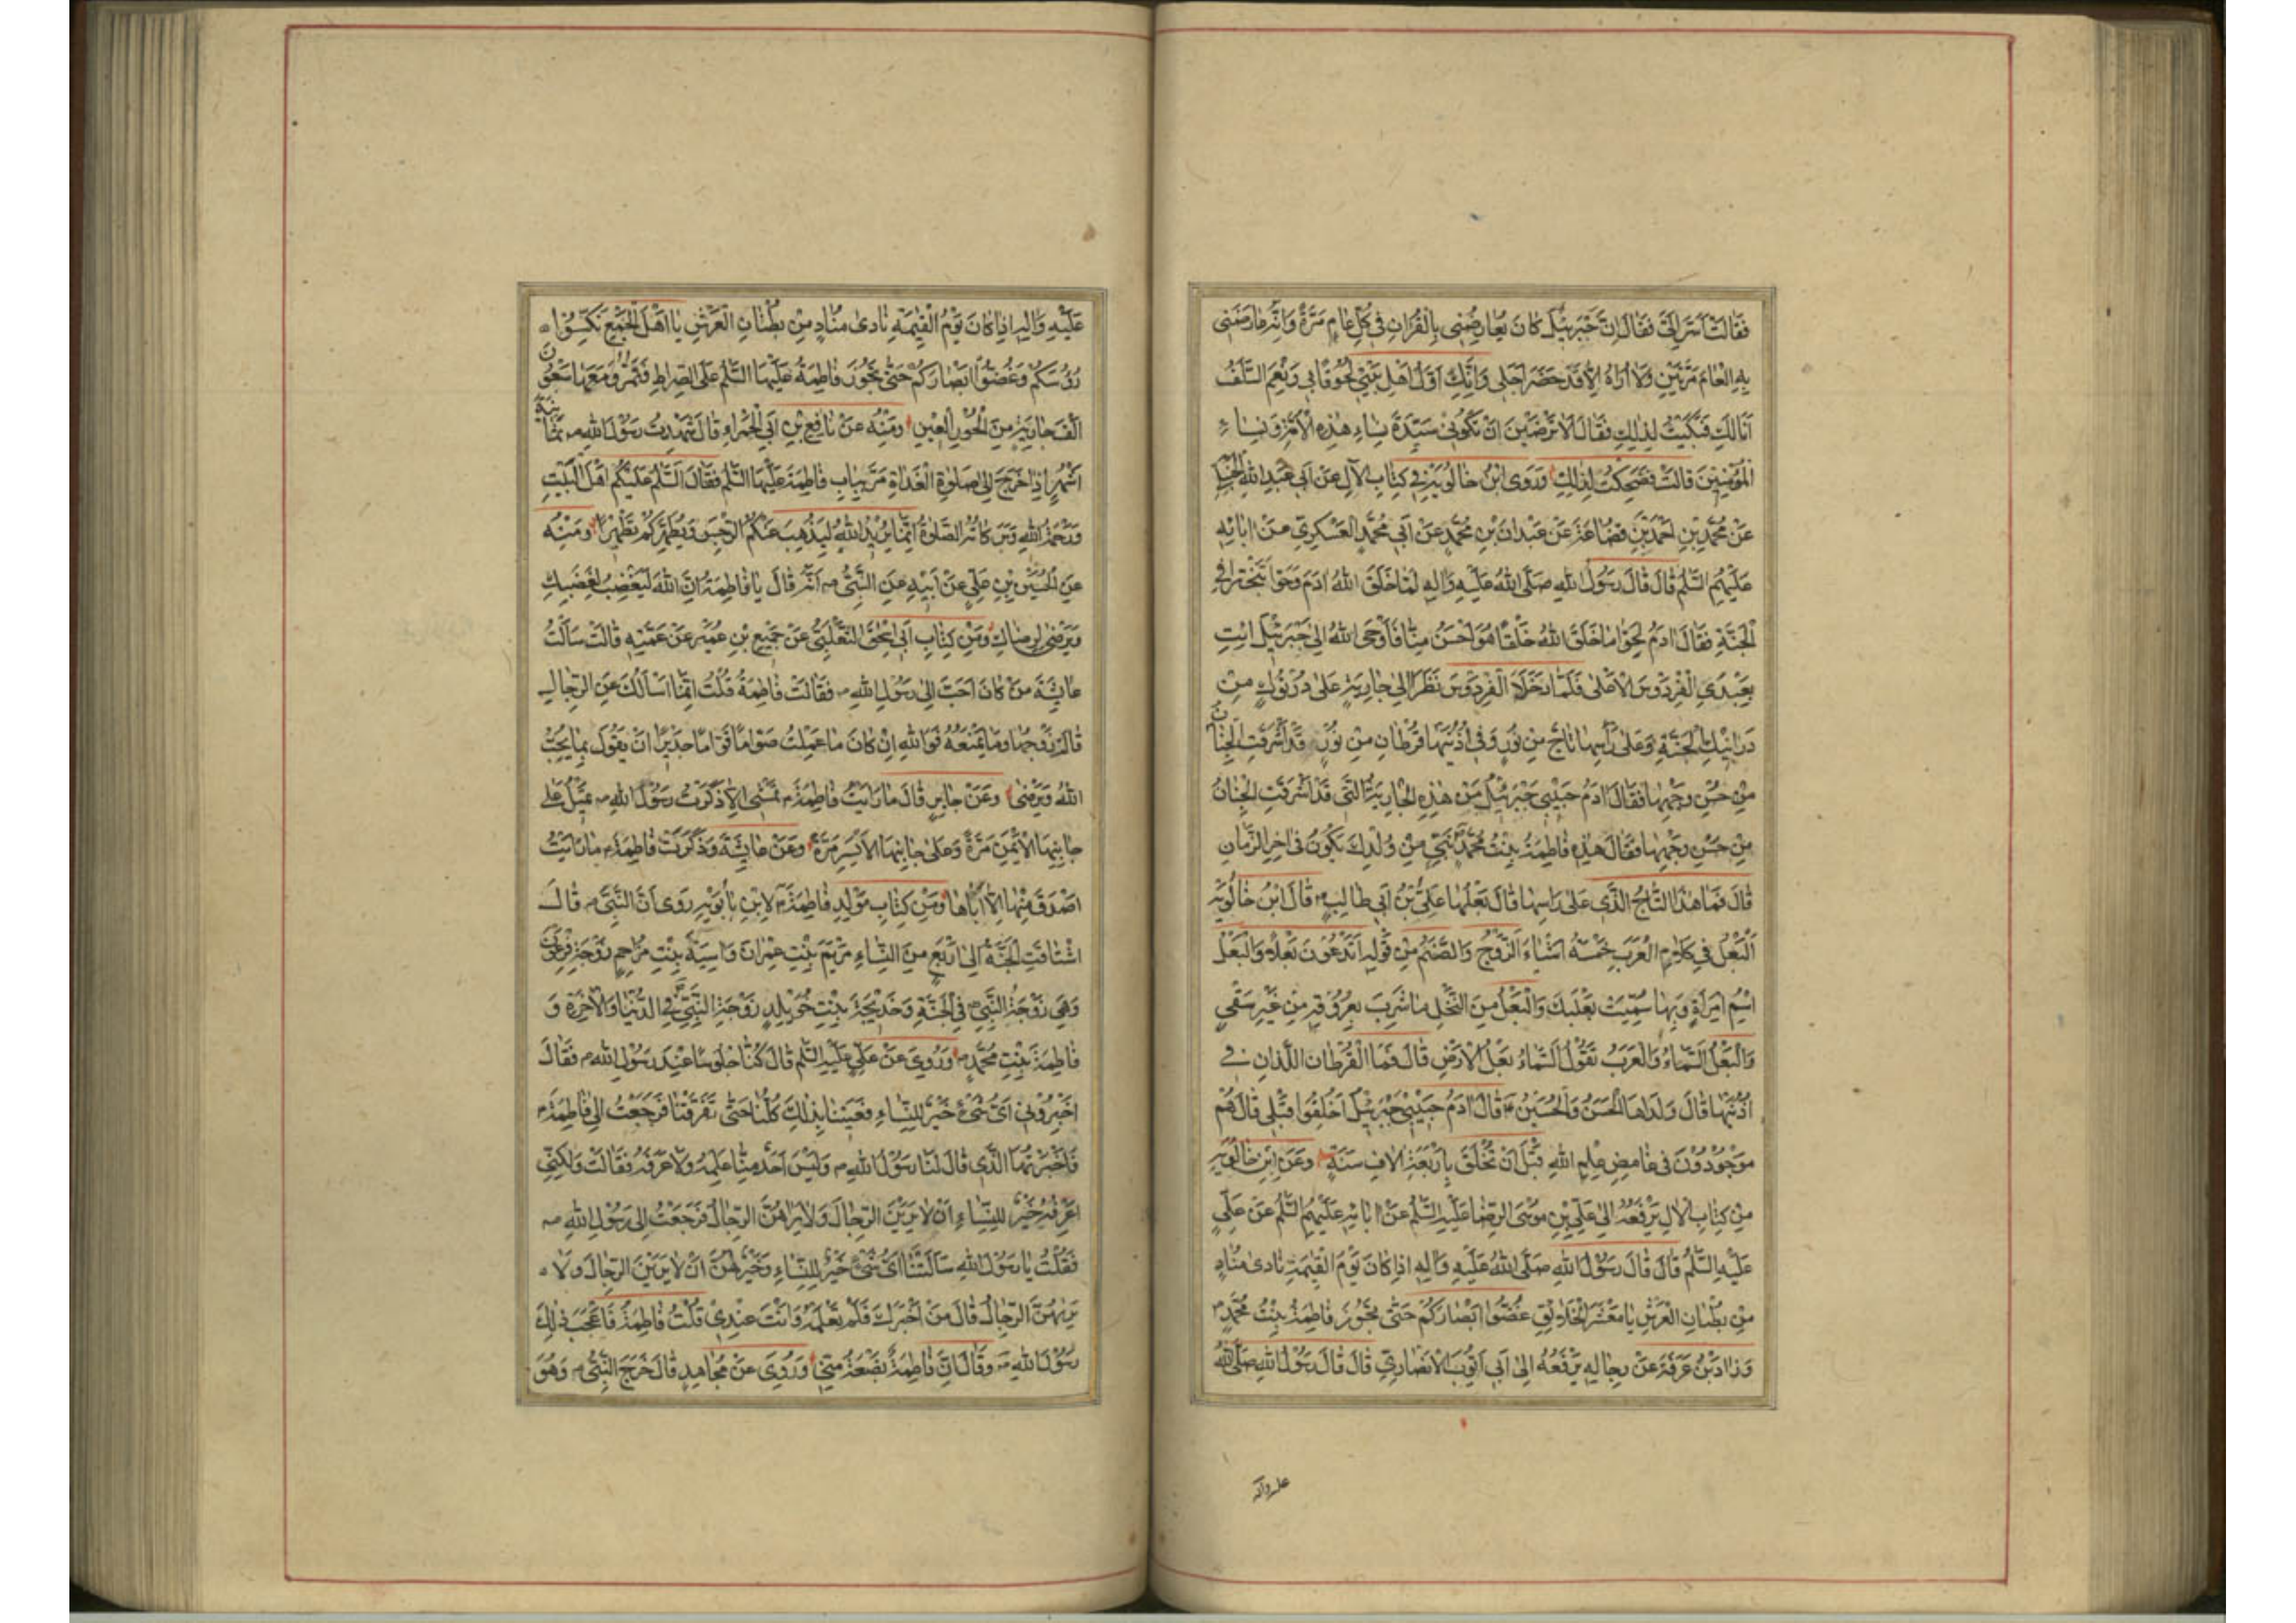 فَقَالَتْ اَسَرَّ اِلَىَّ فَقَالَ اِنَّ جَبْرَئيلَ كَانَ يُعَارِضُنِى بِالْقُرْانِ فِى كُلِّ عَامٍ مَرَّةً وَاِنَّهُ عَارَضَنِى
بِهِ الْعَامَ مَرَّتَيْنِ وَلَا اُرَاهُ اِلَّا قَدْ حَضَرَ اَجَلِى وَاِنَّكِ اَوَّلُ اَهْلِ بَيْتِى لُحُوقًا بِى وَنِعْمَ السَّلَفُ
اَنَا لَكِ فَبَكَيْتُ لِذَلِكِ فَقَالَ اَلَا تَرْضَيْنَ اَنْ تَكُونِى سَيِّدَةَ نِسَاءِ هَذِهِ الْاُمَّةِ وَنِسَاءِ
الْمُؤْمِنِينَ قَالَتْ فَضَحِكْتُ لِذَلِكِ وَرَوَى ابْنُ خَالَوَيْهِ فِى كِتَابِ الْآلِ عَنْ اَبِى عَبْدِ اللهِ
عَنْ مُحَمَّدِ بْنِ اَحْمَدَ بْنِ قُضَاعَةَ عَنْ عَبْدَانَ بْنِ مُحَمَّدٍ عَنْ اَبِى مُحَمَّدٍ الْعَسْكَرِىِّ عَنْ ابَائِهِ
عَلَيْهِمُ السَّلَمُ قَالَ قَالَ رَسُولُ اللهِ صَلَّى اللهُ عَلَيْهِ وَالِهِ لَمَّا خَلَقَ اللهُ ادَمَ وَحَوَّا تَبَخْتَرَا فِى
الْجَنَّةِ فَقَالَ ادَمُ لِحَوَّا مَا خَلَقَ اللهُ خَلْقًا هُوَ اَحْسَنُ مِنَّا فَاَوْحَى اللهُ اِلَى جَبْرَئيلَ ائْتِ
بِعَبْدَىِ الْفِرْدَوْسَ الْاَعْلَى فَلَمَّا دَخَلَا الْفِرْدَوْسَ نَظَرَا اِلَى جَارِيَةٍ عَلَى دُرْنُوكٍ مِنْ
دَرَانِيكِ الْجَنَّةِ وَعَلَى رَأْسِهَا تَاجٌ مِنْ نُورٍ وَفِى اُذُنَيْهَا قُرْطَانِ مِنْ نُورٍ قَدْ اَشْرَقَتِ الْجِنَانُ
مِنْ حُسْنِ وَجْهِهَا فَقَالَ ادَمُ حَبِيبِى جَبْرَئيلُ مَنْ هَذِهِ الْجَارِيَةُ الَّتِى قَدْ اَشْرَقَتِ الْجِنَانُ
مِنْ حُسْنِ وَجْهِهَا فَقَالَ هَذِهِ فَاطِمَةُ بِنْتُ مُحَمَّدٍ نَبِىٍّ مِنْ وُلْدِكَ يَكُونُ فِى اخِرِ الزَّمَانِ
قَالَ فَمَا هَذَا التَّاجُ الَّذِى عَلَى رَاسِهَا قَالَ بَعْلُهَا عَلِىُّ بْنُ اَبِى طَالِبٍ قَالَ ابْنُ خَالَوَيْهِ
اَلْبَعْلُ فِى كَلَامِ الْعَرَبِ خَمْسَةُ اَشْيَاءَ الزَّوْجُ وَالصَّنَمُ مِنْ قَوْلِهِ اَتَدْعُونَ بَعْلًا وَالْبَعْلُ
اسْمُ امْرَاَةٍ وَبِهَا سُمِّيَتْ بَعْلَبَكَّ وَالْبَعْلُ مِنَ النَّخْلِ مَا شَرِبَ بِعُرُوقِهِ مِنْ غَيْرِ سَقْىٍ
وَالْبَعْلُ السَّمَاءُ وَالْعَرَبُ تَقُولُ السَّمَاءُ بَعْلُ الْاَرْضِ قَالَ فَمَا الْقُرْطَانِ اللَّذَانِ فِى
اُذُنَيْهَا قَالَ وَلَدَاهَا الْحَسَنُ وَالْحُسَيْنُ قَالَ ادَمُ حَبِيبِى جَبْرَئيلُ اَخُلِقُوا قَبْلِى قَالَ هُمْ
مَوْجُودُونَ فِى غَامِضِ عِلْمِ اللهِ قَبْلَ اَنْ تُخْلَقَ بِاَرْبَعَةِ الَافِ سَنَةٍ وَعَنِ ابْنِ خَالَوَيْهِ
مِنْ كِتَابِ الْآلِ يَرْفَعُهُ اِلَى عَلِىِّ بْنِ مُوسَى الرِّضَا عَلَيْهِ السَّلَمُ عَنْ ابَائِهِ عَلَيْهِمُ السَّلَمُ عَنْ عَلِىٍّ
عَلَيْهِ السَّلَمُ قَالَ قَالَ رَسُولُ اللهِ صَلَّى اللهُ عَلَيْهِ وَالِهِ اِذَا كَانَ يَوْمُ الْقِيمَةِ نَادَى مُنَادٍ
مِنْ بُطْنَانِ الْعَرْشِ يَا مَعْشَرَ الْخَلَائِقِ غُضُّوا اَبْصَارَكُمْ حَتَّى تَجُوزَ فَاطِمَةُ بِنْتُ مُحَمَّدٍ
وَزَادَ بْنُ عَرَفَةَ عَنْ رِجَالِهِ يَرْفَعُهُ اِلَى اَبِى اَيُّوبَ الْاَنْصَارِىِّ قَالَ قَالَ رَسُولُ اللهِ صَلَّى اللهُ
عليه وآله
عَلَيْهِ وَالِهِ اِذَا كَانَ يَوْمُ الْقِيمَةِ نَادَى مُنَادٍ مِنْ بُطْنَانِ الْعَرْشِ يَا اَهْلَ الْجَمْعِ نَكِّسُوا
رُؤُسَكُمْ وَغُضُّوا اَبْصَارَكُمْ حَتَّى تَجُوزَ فَاطِمَةُ عَلَيْهَا السَّلَمُ عَلَى الصِّرَاطِ فَتَمُرُّ وَمَعَهَا سَبْعُونَ
اَلْفَ جَارِيَةٍ مِنَ الْحُورِ الْعِينِ وَمِنْهُ عَنْ نَافِعِ بْنِ اَبِى الْحَمْرَاءِ قَالَ شَهِدْتُ رَسُولَ اللهِ ص ثَمَانِيَةَ
اَشْهُرٍ اِذَا خَرَجَ اِلَى صَلوةِ الْغَدَاةِ مَرَّ بِبَابِ فَاطِمَةَ عَلَيْهَا السَّلَمُ فَقَالَ السَّلَمُ عَلَيْكُمْ اَهْلَ الْبَيْتِ
وَرَحْمَةُ اللهِ وَبَرَكَاتُهُ الصَّلوةُ اِنَّمَا يُرِيدُ اللهُ لِيُذْهِبَ عَنْكُمُ الرِّجْسَ وَيُطَهِّرَكُمْ تَطْهِيرًا وَمِنْهُ
عَنِ الْحُسَيْنِ بْنِ عَلِىٍّ عَنْ اَبِيهِ عَنِ النَّبِىِّ ص اَنَّهُ قَالَ يَا فَاطِمَةُ اِنَّ اللهَ لَيَغْضِبُ لِغَضَبِكِ
وَيَرْضَى لِرِضَاكِ وَمِنْ كِتَابِ اَبِى اِسْحَقَ الثَّعْلَبِىِّ عَنْ جُمَيْعِ بْنِ عُمَيْرٍ عَنْ عَمَّتِهِ قَالَتْ سَأَلْتُ
عَايِشَةَ مَنْ كَانَ اَحَبَّ اِلَى رَسُولِ اللهِ ص فَقَالَتْ فَاطِمَةُ قُلْتُ اِنَّمَا اَسْاَلُكِ عَنِ الرِّجَالِ
قَالَتْ زَوْجُهَا وَمَا يَمْنَعُهُ فَوَاللهِ اِنْ كَانَ مَا عَمِلْتُ صَوَّامًا قَوَّامًا جَدِيرًا اَنْ يَقُولَ بِمَا يُحِبُّ
اللهُ وَيَرْضَى وَعَنْ جَابِرٍ قَالَ مَا رَاَيْتُ فَاطِمَةَ تَمْشِى اِلَّا ذَكَرْتُ رَسُولَ اللهِ ص تَمِيلُ عَلَى
جَانِبِهَا الْاَيْمَنِ مَرَّةً وَعَلَى جَانِبِهَا الْاَيْسَرِ مَرَّةً وَعَنْ عَايِشَةَ وَذَكَرَتْ فَاطِمَةَ مَا رَاَيْتُ
اَصْدَقَ مِنْهَا اِلَّا اَبَاهَا وَمِنْ كِتَابِ مَوْلِدِ فَاطِمَةَ لِابْنِ بَابَوَيْهِ رَوَى اَنَّ النَّبِىَّ ص قَالَ
اشْتَاقَتِ الْجَنَّةُ اِلَى اَرْبَعٍ مِنَ النِّسَاءِ مَرْيَمَ بِنْتِ عِمْرَانَ وَاسِيَةَ بِنْتِ مُزَاحِمٍ زَوْجَةِ فِرْعَوْنَ
وَهِىَ زَوْجَةُ النَّبِىِّ فِى الْجَنَّةِ وَخَدِيجَةَ بِنْتِ خُوَيْلِدٍ زَوْجَةِ النَّبِىِّ فِى الدُّنْيَا وَالْاخِرَةِ وَ
فَاطِمَةَ بِنْتِ مُحَمَّدٍ وَرُوِىَ عَنْ عَلِىٍّ عَلَيْهِ السَّلَمُ قَالَ كُنَّا جُلُوسًا عِنْدَ رَسُولِ اللهِ فَقَالَ
اَخْبِرُونِى اَىُّ شَىْءٍ خَيْرٌ لِلنِّسَاءِ فَعَيِينَا بِذَلِكَ كُلُّنَا حَتَّى تَفَرَّقْنَا فَرَجَعْتُ اِلَى فَاطِمَةَ
فَاَخْبَرْتُهَا الَّذِى قَالَ لَنَا رَسُولُ اللهِ ص وَلَيْسَ اَحَدٌ مِنَّا عَلِمَهُ وَلَا عَرَفَهُ فَقَالَتْ وَلَكِنِّى
اَعْرِفُهُ خَيْرٌ لِلنِّسَاءِ اَنْ لَا يَرَيْنَ الرِّجَالَ وَلَا يَرَاهُنَّ الرِّجَالُ فَرَجَعْتُ اِلَى رَسُولِ اللهِ ص
فَقُلْتُ يَا رَسُولَ اللهِ سَاَلْتَنَا اَىُّ شَىْءٍ خَيْرٌ لِلنِّسَاءِ وَخَيْرٌ لَهُنَّ اَنْ لَا يَرَيْنَ الرِّجَالَ وَلَا
يَرَيهُنَّ الرِّجَالُ قَالَ مَنْ اَخْبَرَكَ فَلَمْ تَعْلَمْهُ وَاَنْتَ عِنْدِى قُلْتُ فَاطِمَةُ فَاَعْجَبَ ذَلِكَ
رَسُولَ اللهِ ص وَقَالَ اِنَّ فَاطِمَةَ بَضْعَةٌ مِنِّى وَرُوِىَ عَنْ مُجَاهِدٍ قَالَ خَرَجَ النَّبِىُّ ص وَهُوَ